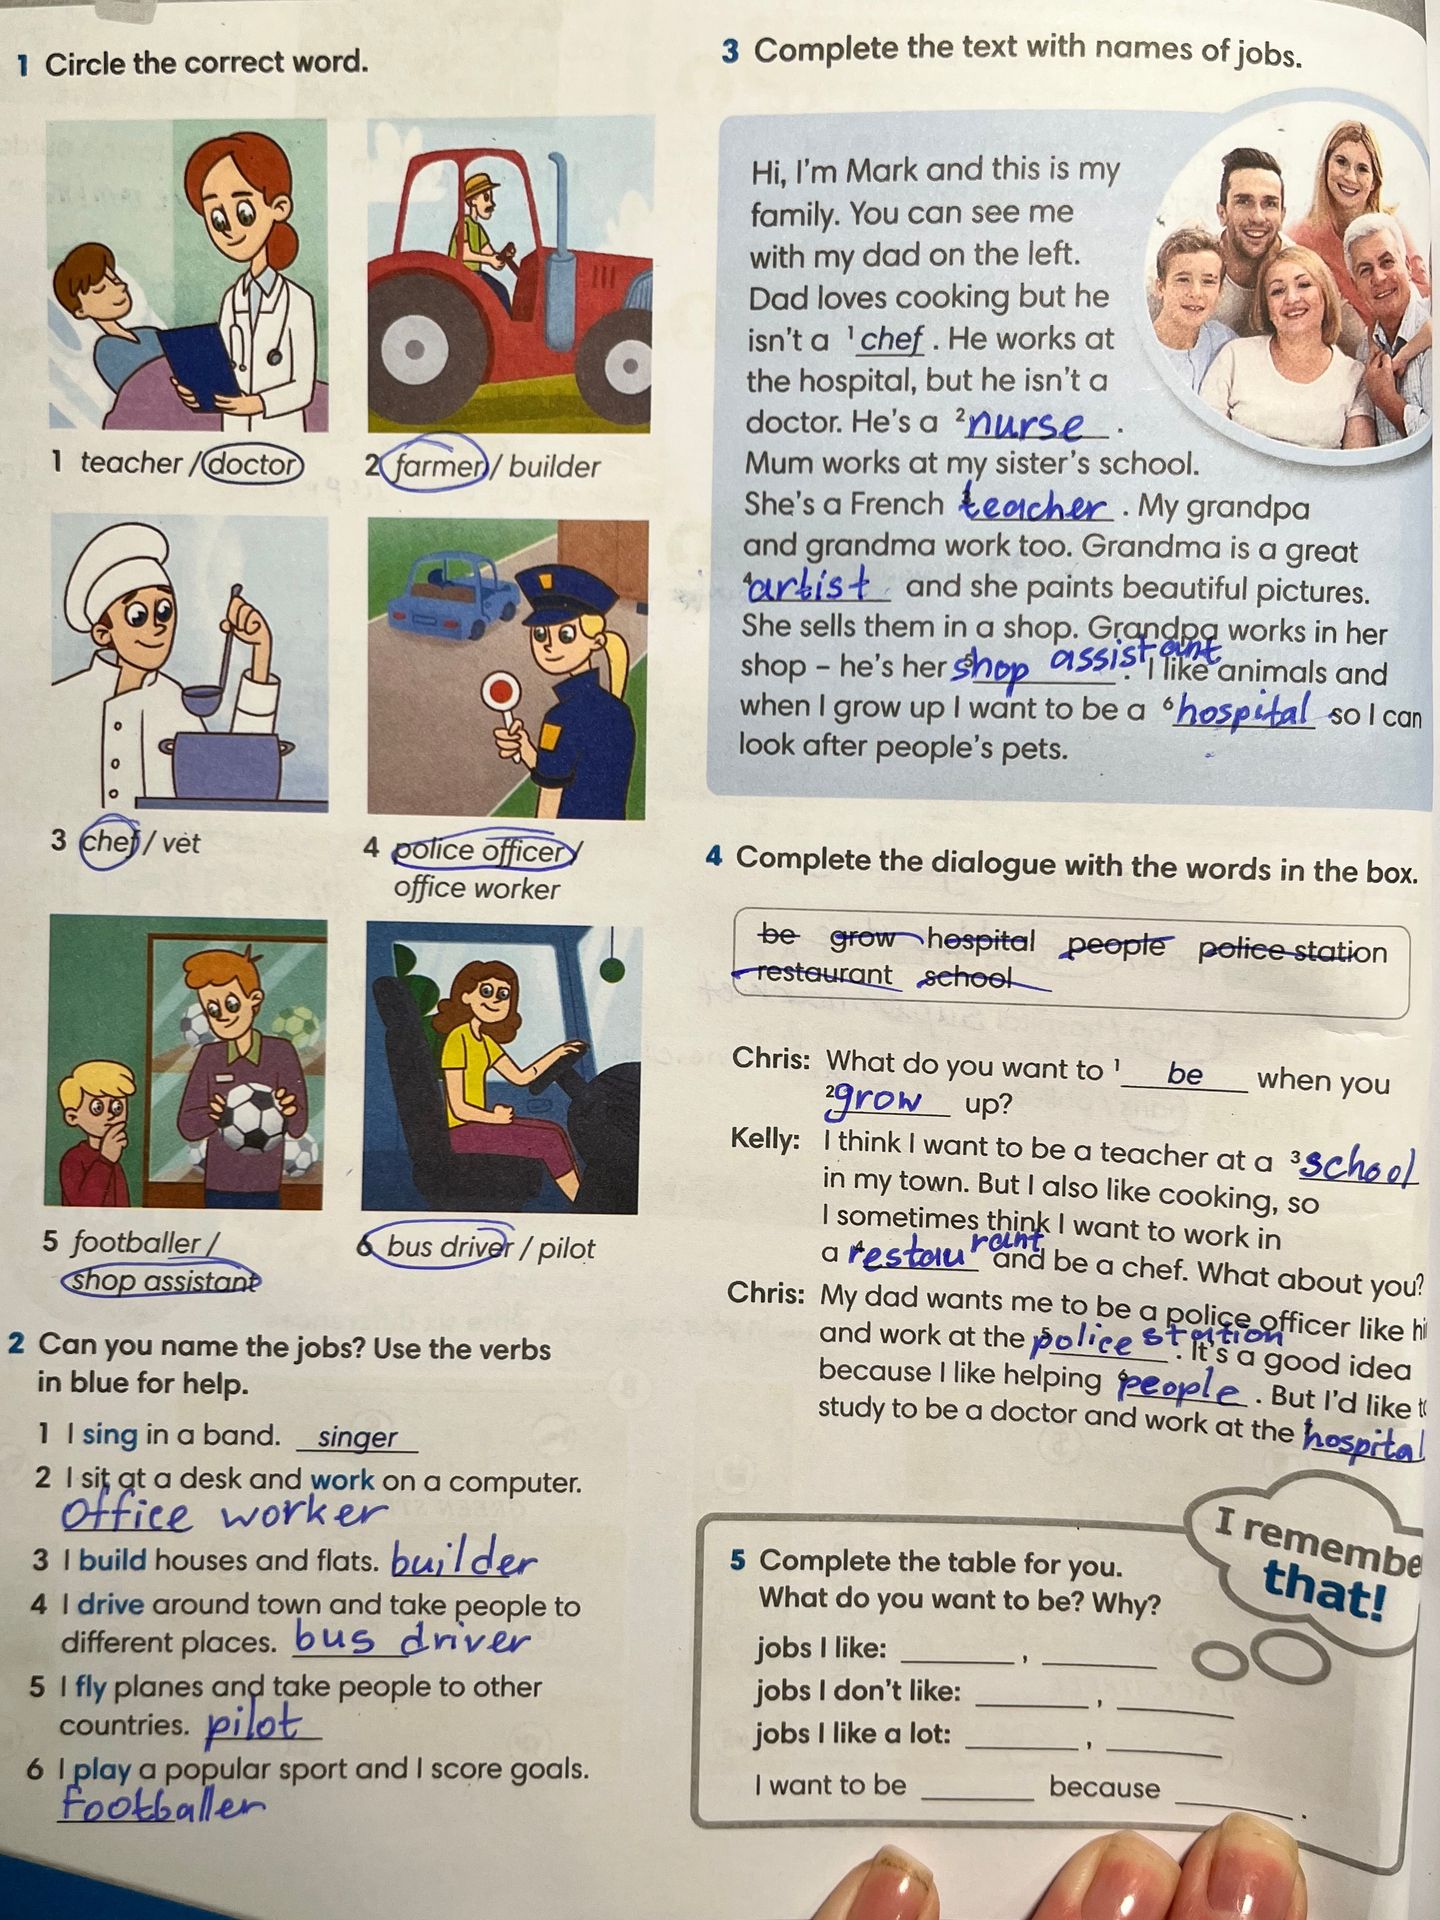 1 Circle the correct word.
1 teacher / doctor
2 farmer / builder
3 chef / vet
4 police officer /
office worker
5 footballer /
shop assistant
6 bus driver / pilot
2 Can you name the jobs? Use the verbs
in blue for help.
1 I sing in a band. singer
2 I sit at a desk and work on a computer.
office worker
3 I build houses and flats. builder
4 I drive around town and take people to
different places. bus driver
5 I fly planes and take people to other
countries. pilot
6 I play a popular sport and I score goals.
footballer
3 Complete the text with names of jobs.
Hi, I'm Mark and this is my
family. You can see me
with my dad on the left.
Dad loves cooking but he
isn't a 1 chef. He works at
the hospital, but he isn't a
doctor. He's a 2 nurse.
Mum works at my sister's school.
She's a French 3 teacher. My grandpa
and grandma work too. Grandma is a great
4 artist and she paints beautiful pictures.
She sells them in a shop. Grandpa works in her
shop – he's her 5 shop assistant. I like animals and
when I grow up I want to be a 6 hospital so I can
look after people's pets.
4 Complete the dialogue with the words in the box.
be grow hospital people police station
restaurant school
Chris: What do you want to 1 be when you
2 grow up?
Kelly: I think I want to be a teacher at a 3 school
in my town. But I also like cooking, so
I sometimes think I want to work in
a 4 restaurant and be a chef. What about you?
Chris: My dad wants me to be a police officer like hi
and work at the 5 police station. It's a good idea
because I like helping 6 people. But I'd like to
study to be a doctor and work at the 7 hospital
I remembe
that!
5 Complete the table for you.
What do you want to be? Why?
jobs I like: ______, ______
jobs I don't like: ______, ______
jobs I like a lot: ______, ______
I want to be ______ because ______.